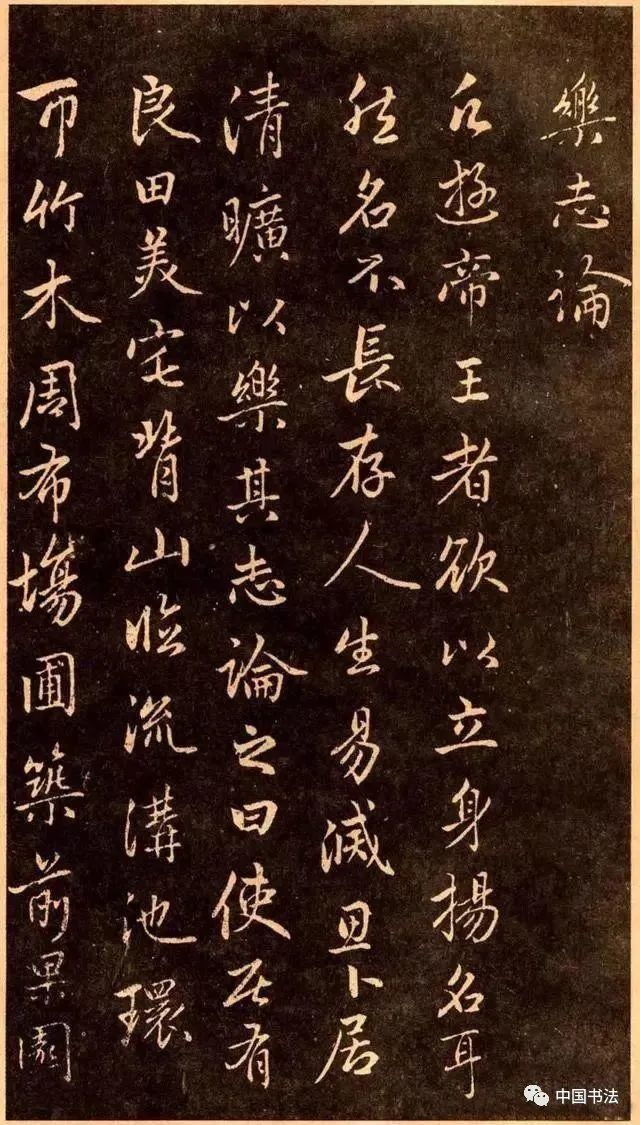 樂志論
凡遊帝王者欲以立身揚名耳
然名不長存人生易滅思卜居
清曠以樂其志論之曰使居有
良田美宅背山臨流溝池環
帀竹木周布場圃築前果園
中国书法